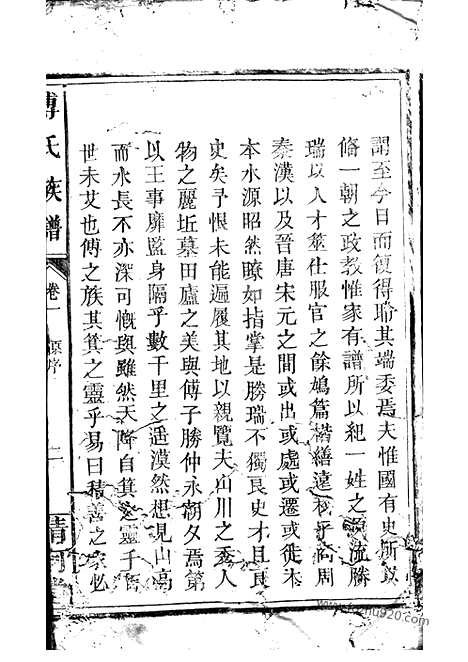 謂至今日而復得聆其端委焉夫惟國有史所以
備一朝之政教惟家有譜所以紀一姓之源流勝
瑞以人才筮仕服官之餘鳩篇楷繕遠 乎商周
秦漢以及晉唐宋元之間或出或處或遷或徙木
本水源昭然瞭如指掌是勝瑞不獨良史才且良
史矣予恨未能遍履其地以親覽夫山川之秀人
物之麗坵墓田廬之美與傅子勝仲永朝夕焉第
以王事靡盬身隔乎數千里之遥漠然想見山高
而水長不亦深可慨與雖然天降自箕之靈千百
世未艾也傅之族其箕之靈乎易曰積善之家必
傅氏族譜
卷一
原序
二
清
www.jiapu920.com